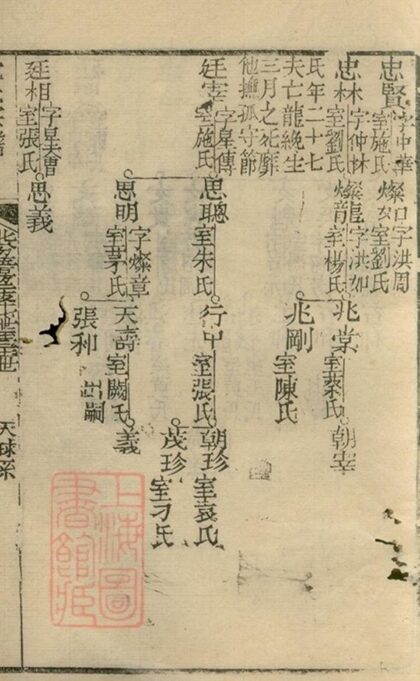 忠賢 字中華 室施氏
燦 字洪周 室劉氏
忠林 字仲林 室劉氏
燦龍 字洪如 室楊氏
兆棠 室蔡氏
朝宰
兆剛 室陳氏
氏年二十七
夫亡龍繞生
三月之死靡
他撫孤守節
廷宰 字星傳 室施氏
思聰 室朱氏
行中 室張氏
朝珍 室袁氏
茂珍 室刁氏
思明 字燦章 室茅氏
天壽 室闕氏
義
張利 嗣
廷相 字星會 室張氏
思義
天球系
上海圖書館藏